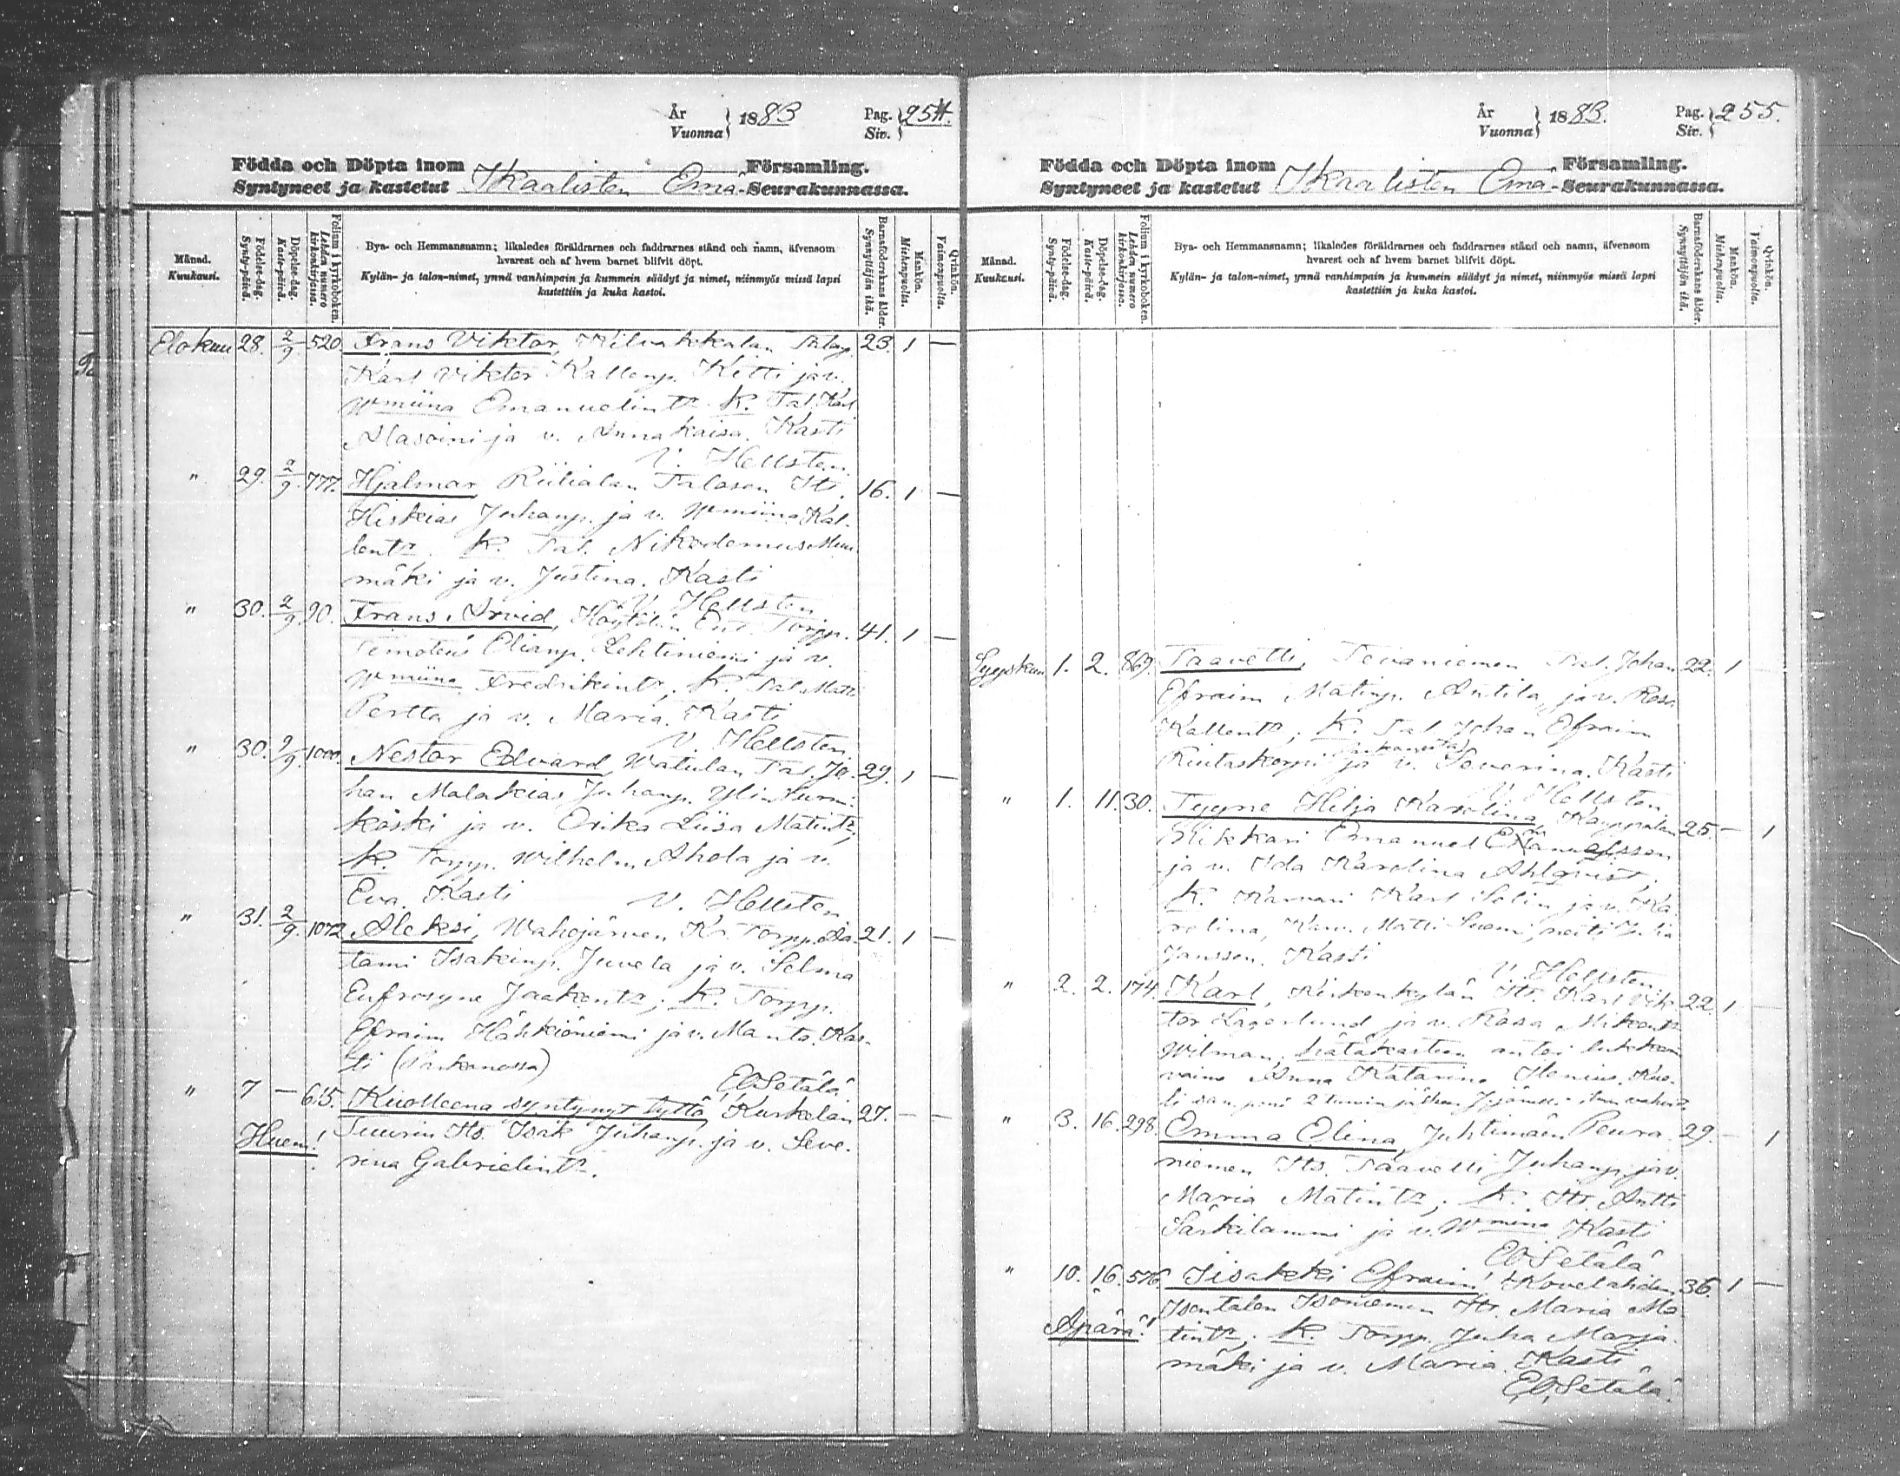 År
Vuonna } 1883
Pag.
Siv. } 254.
Födda och Döpta inom Ikaalisten Emä- Församling.
Syntyneet ja kastetut Seurakunnassa.
Månad.
Kuukausi.
Födelse-dag.
Synty-päivä.
Döpelse-dag.
Kaste-päivä.
Folium i kyrkoboken.
Lehden numero kirkonkirjassa.
Bya- och Hemmansnamn; likaledes föräldrarnes och faddrarnes stånd och namn, äfvensom
hvarest och af hvem barnet blifvit döpt.
Kylän- ja talon-nimet, ynnä vanhimpain ja kummein säädyt ja nimet, niinmyös missä lapsi
kastettiin ja kuka kastoi.
Barnaföderskans ålder.
Synnyttäjän ikä.
Mankön.
Miehenpuolia.
Qvinkön.
Vaimonpuolia.
Elokuu 28. 2/9 520. Frans Viktor, Kilvakkalan 23. 1 —
Karl Viktor Kallenp. Kitti ja v.
Wmiina Emanuelint. K. Tal. Karl
Masoini ja v. Anna Kaisa. Kasti
V. Hellsten.
" 29. 2/9 777. Hjalmar, Riitialan Talosen Its. 16. 1 —
Hiskias Juhanp. ja v. Wmiina Kal-
lent. K. Tal. Nikodemus
mäki ja v. Justina. Kasti
V. Hellsten
" 30. 2/9 90. Frans Arvid, Höytölän Torpp. 41. 1 —
Timoteus Elianp. Lehtiniemi ja v.
Wmiina Fredrikint. K. Tal. Matti
Pertta ja v. Maria. Kasti
V. Hellsten.
" 30. 2/9 1000. Nestor Edvard, Watulan Tal. Jo- 29. 1 —
han Malakias Juhanp. Ylinurmi-
koski ja v. Erika Liisa Matint.,
K. Torpp. Wilhelm Ahola ja v.
Eva. Kasti V. Hellsten
" 31. 2/9 1072 Aleksi, Wahojärven Kr. Torpp. Aa- 21. 1 —
tami Isakinp. Juvela ja v. Selma
Eufrosyne Jaakont.; K. Torpp.
Efraim Häkkiöniemi ja v. Manta. Kas-
ti (Parkanossa)
EA Setälä
" 7 — 615. Kuolleena syntynyt tyttö, Kurkelan 27. — —
Huom! Tuurin Its. Isak Juhanp. ja v. Seve-
rina Gabrielint.
År
Vuonna } 1883.
Pag.
Siv. } 255.
Födda och Döpta inom Ikaalisten Emä- Församling.
Syntyneet ja kastetut Seurakunnassa.
Månad.
Kuukausi.
Födelse-dag.
Synty-päivä.
Döpelse-dag.
Kaste-päivä.
Folium i kyrkoboken.
Lehden numero kirkonkirjassa.
Bya- och Hemmansnamn; likaledes föräldrarnes och faddrarnes stånd och namn, äfvensom
hvarest och af hvem barnet blifvit döpt.
Kylän- ja talon-nimet, ynnä vanhimpain ja kummein säädyt ja nimet, niinmyös missä lapsi
kastettiin ja kuka kastoi.
Barnaföderskans ålder.
Synnyttäjän ikä.
Mankön.
Miehenpuolia.
Qvinkön.
Vaimonpuolia.
Syyskuu 1. 2. 869. Taavetti, Tevaniemen Tal. Johan 22. 1 —
Efraim Matinp. Antila, ja v. Rosa
Kallent.; K. Tal. Johan Efraim
Riutaskorpi ja v. Severina. Kasti
V. Hellsten
" 1. 11. 30. Tyyne Hilja Karolina, Kauppalan 25. — 1
Emanuel
ja v. Ida Karolina Ahlqvist.
K. Karvari Karl Solin ja v. Ka-
rolina, Karv. Matti Suomi, neiti Julia
Janssen. Kasti
V. Hellsten.
" 2. 2. 174. Karl, Kirkonkylän Its. Karl Vik- 22. 1 —
tor Lagerlund ja v. Rosa Mikont.
Wilman; hätäkasteen antoi lukkarin
vaimo Anna Katarina Kuo-
li sam. päivä
" 3. 16. 298. Emma Elina, Juhtimäen Peura- 29. — 1
niemen Its. Taavetti Juhanp. ja v.
Maria Matint.; K. Its. Antti
Särkilammi ja v. Wmiina Kasti
EA Setälä
" 10. 16. 576 Iisakki Efraim! Kovelahden 36. 1 —
Äpärä! Isontalon Isoniemen Its. Maria Ma-
tint.; K. Torpp. Juha Marja-
mäki ja v. Maria. Kasti
EA Setälä